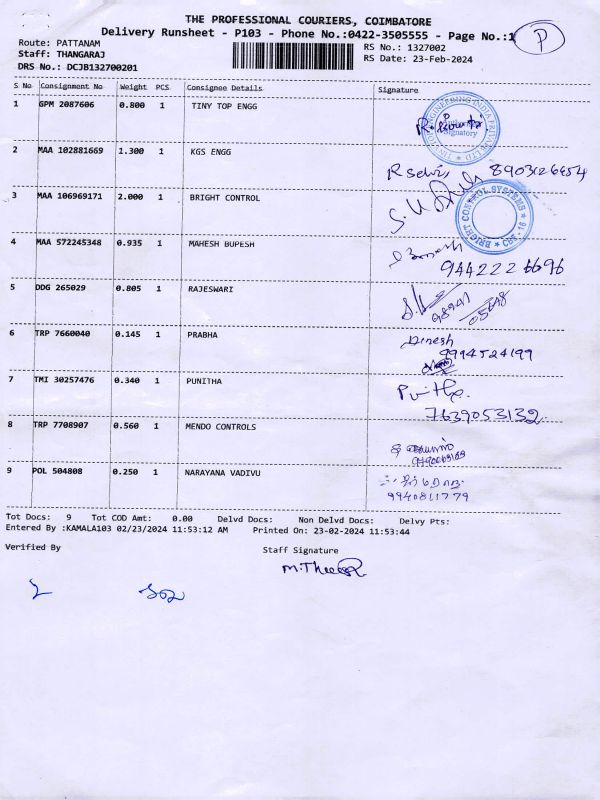 THE PROFESSIONAL COURIERS, COIMBATORE
Delivery Runsheet - P103 - Phone No.:0422-3505555 - Page No.:1 P
Route: PATTANAM RS No.: 1327002
Staff: THANGARAJ RS Date: 23-Feb-2024
DRS No.: DCJB132700201
S No Consignment No Weight PCS Consignee Details Signature
1 GPM 2087606 0.800 1 TINY TOP ENGG
2 MAA 102881669 1.300 1 KGS ENGG
R selvi 8903126454
3 MAA 106969171 2.000 1 BRIGHT CONTROL
BRIGHT CONTROL SYSTEMS ★ CBE - 16 ★
4 MAA 572245348 0.935 1 MAHESH BUPESH
944222 6696
5 DDG 265029 0.805 1 RAJESWARI
6 TRP 7660040 0.145 1 PRABHA Dinesh
9994524199
7 TMI 30257476 0.340 1 PUNITHA Punitha
7639053132
8 TRP 7708907 0.560 1 MENDO CONTROLS
9 POL 504808 0.250 1 NARAYANA VADIVU
9940811779
Tot Docs: 9 Tot COD Amt: 0.00 Delvd Docs: Non Delvd Docs: Delvy Pts:
Entered By :KAMALA103 02/23/2024 11:53:12 AM Printed On: 23-02-2024 11:53:44
Verified By Staff Signature